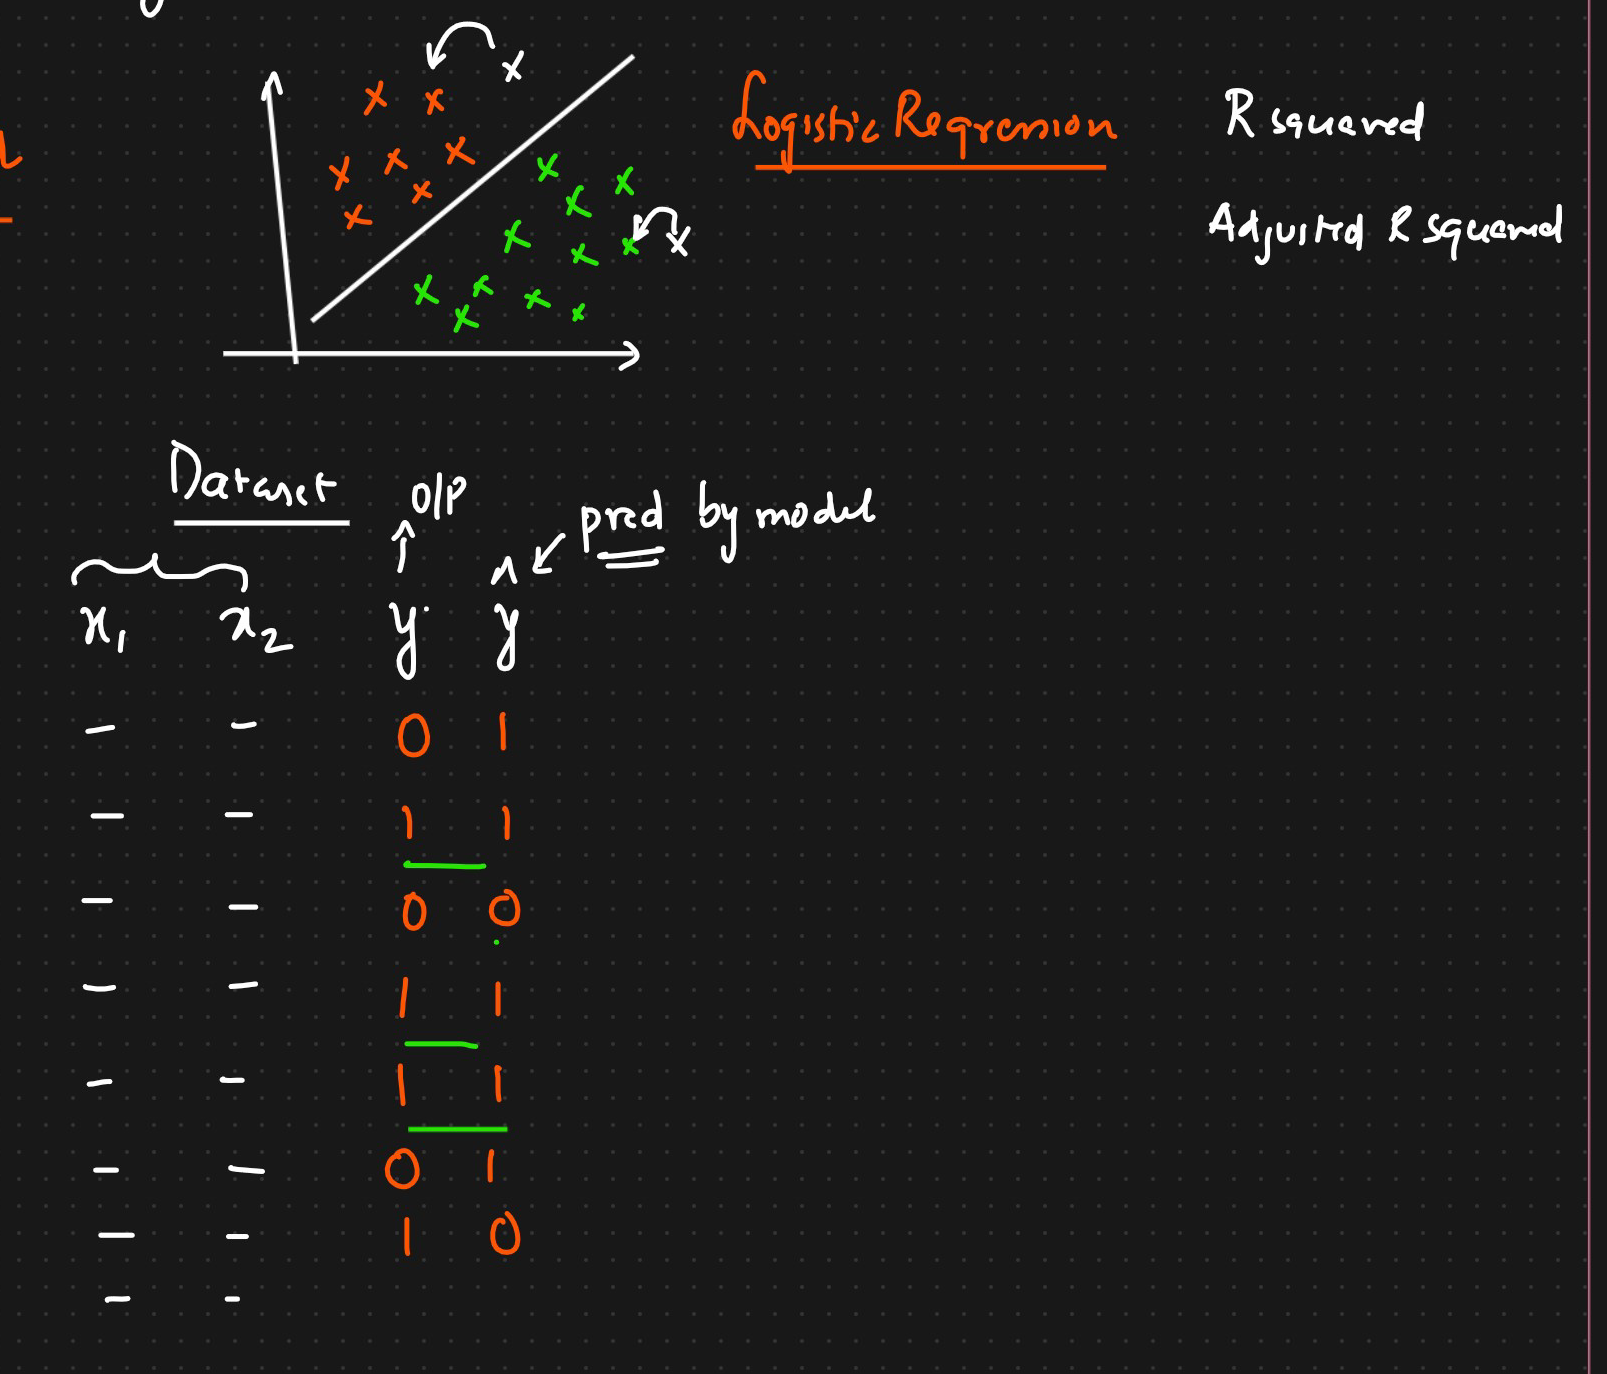 Logistic Regression
R squared
Adjusted R squared
Dataset
O/P
pred by model
x₁ x₂ y ŷ
- - 0 1
- - 1 1
- - 0 0
- - 1 1
- - 1 1
- - 0 1
- - 1 0
- -